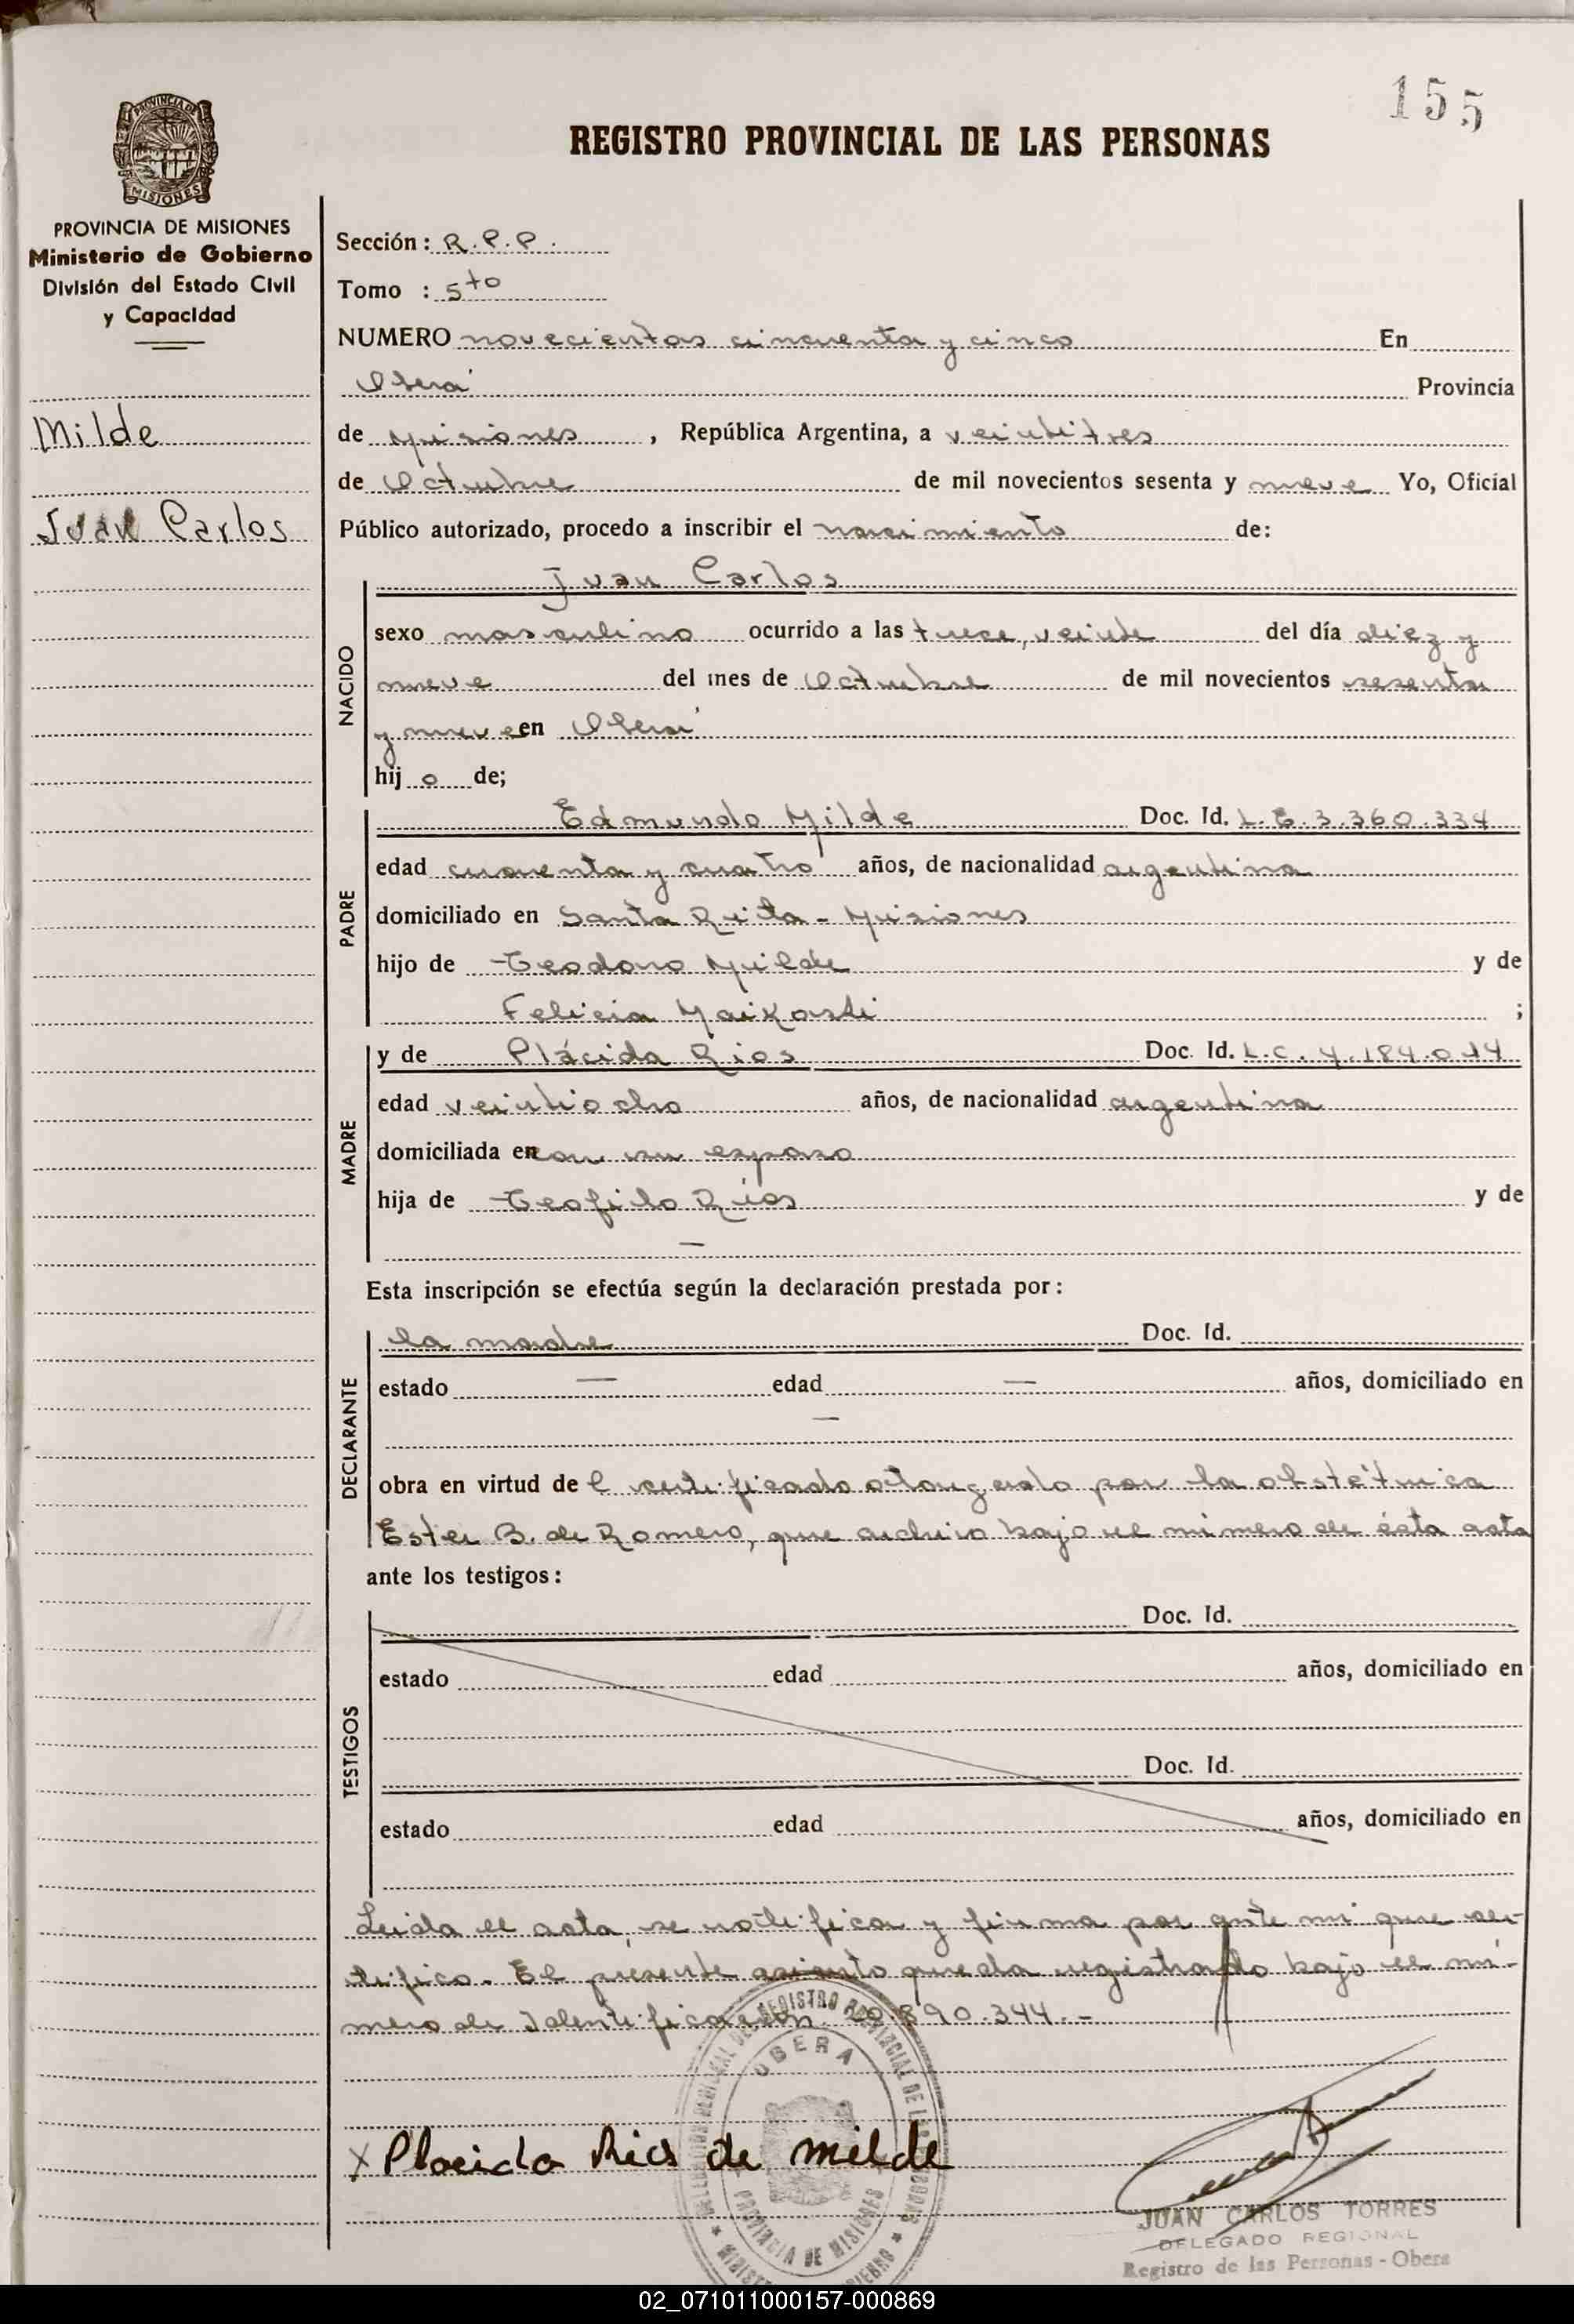 155
REGISTRO PROVINCIAL DE LAS PERSONAS
PROVINCIA DE MISIONES
PROVINCIA DE MISIONES
Ministerio de Gobierno
División del Estado Civil
y Capacidad
Milde
Juan Carlos
Sección: R.P.P.
Tomo : 5to
NUMERO novecientos cincuenta y cinco En
Oberá Provincia
de Misiones, República Argentina, a veintitres
de Octubre de mil novecientos sesenta y nueve Yo, Oficial
Público autorizado, procedo a inscribir el nacimiento de:
NACIDO
Juan Carlos
sexo masculino ocurrido a las trece, veinte del día diez y
nueve del mes de Octubre de mil novecientos sesenta
y nueve en Oberá
hijo de;
PADRE
Edmundo Milde Doc. Id. L.E.3.360.334
edad cuarenta y cuatro años, de nacionalidad argentina
domiciliado en Santa Rita - Misiones
hijo de Teodoro Milde y de
Felicia ;
MADRE
y de Plácida Rios Doc. Id. L.C. 4.184.014
edad veintiocho años, de nacionalidad argentina
domiciliada en con su esposo
hija de Teofilo Ríos y de
—
Esta inscripción se efectúa según la declaración prestada por:
DECLARANTE
la madre Doc. Id.
estado — edad — años, domiciliado en
—
obra en virtud del certificado otorgado por la obstétrica
Ester B. de Romero, que archivo bajo el número de ésta acta
ante los testigos:
TESTIGOS
Doc. Id.
estado edad años, domiciliado en
Doc. Id.
estado edad años, domiciliado en
Leida el acta, se notifica y firma por ante mi que cer-
tifico. El presente asiento queda registrado bajo el nú-
mero de Identificación. 20.890.344.-
REGISTRO PROVINCIAL DE LAS
OBERA
PROVINCIA DE MISIONES
x Placida Rios de milde
JUAN CARLOS TORRES
DELEGADO REGIONAL
Registro de las Personas - Obera
02_071011000157-000869